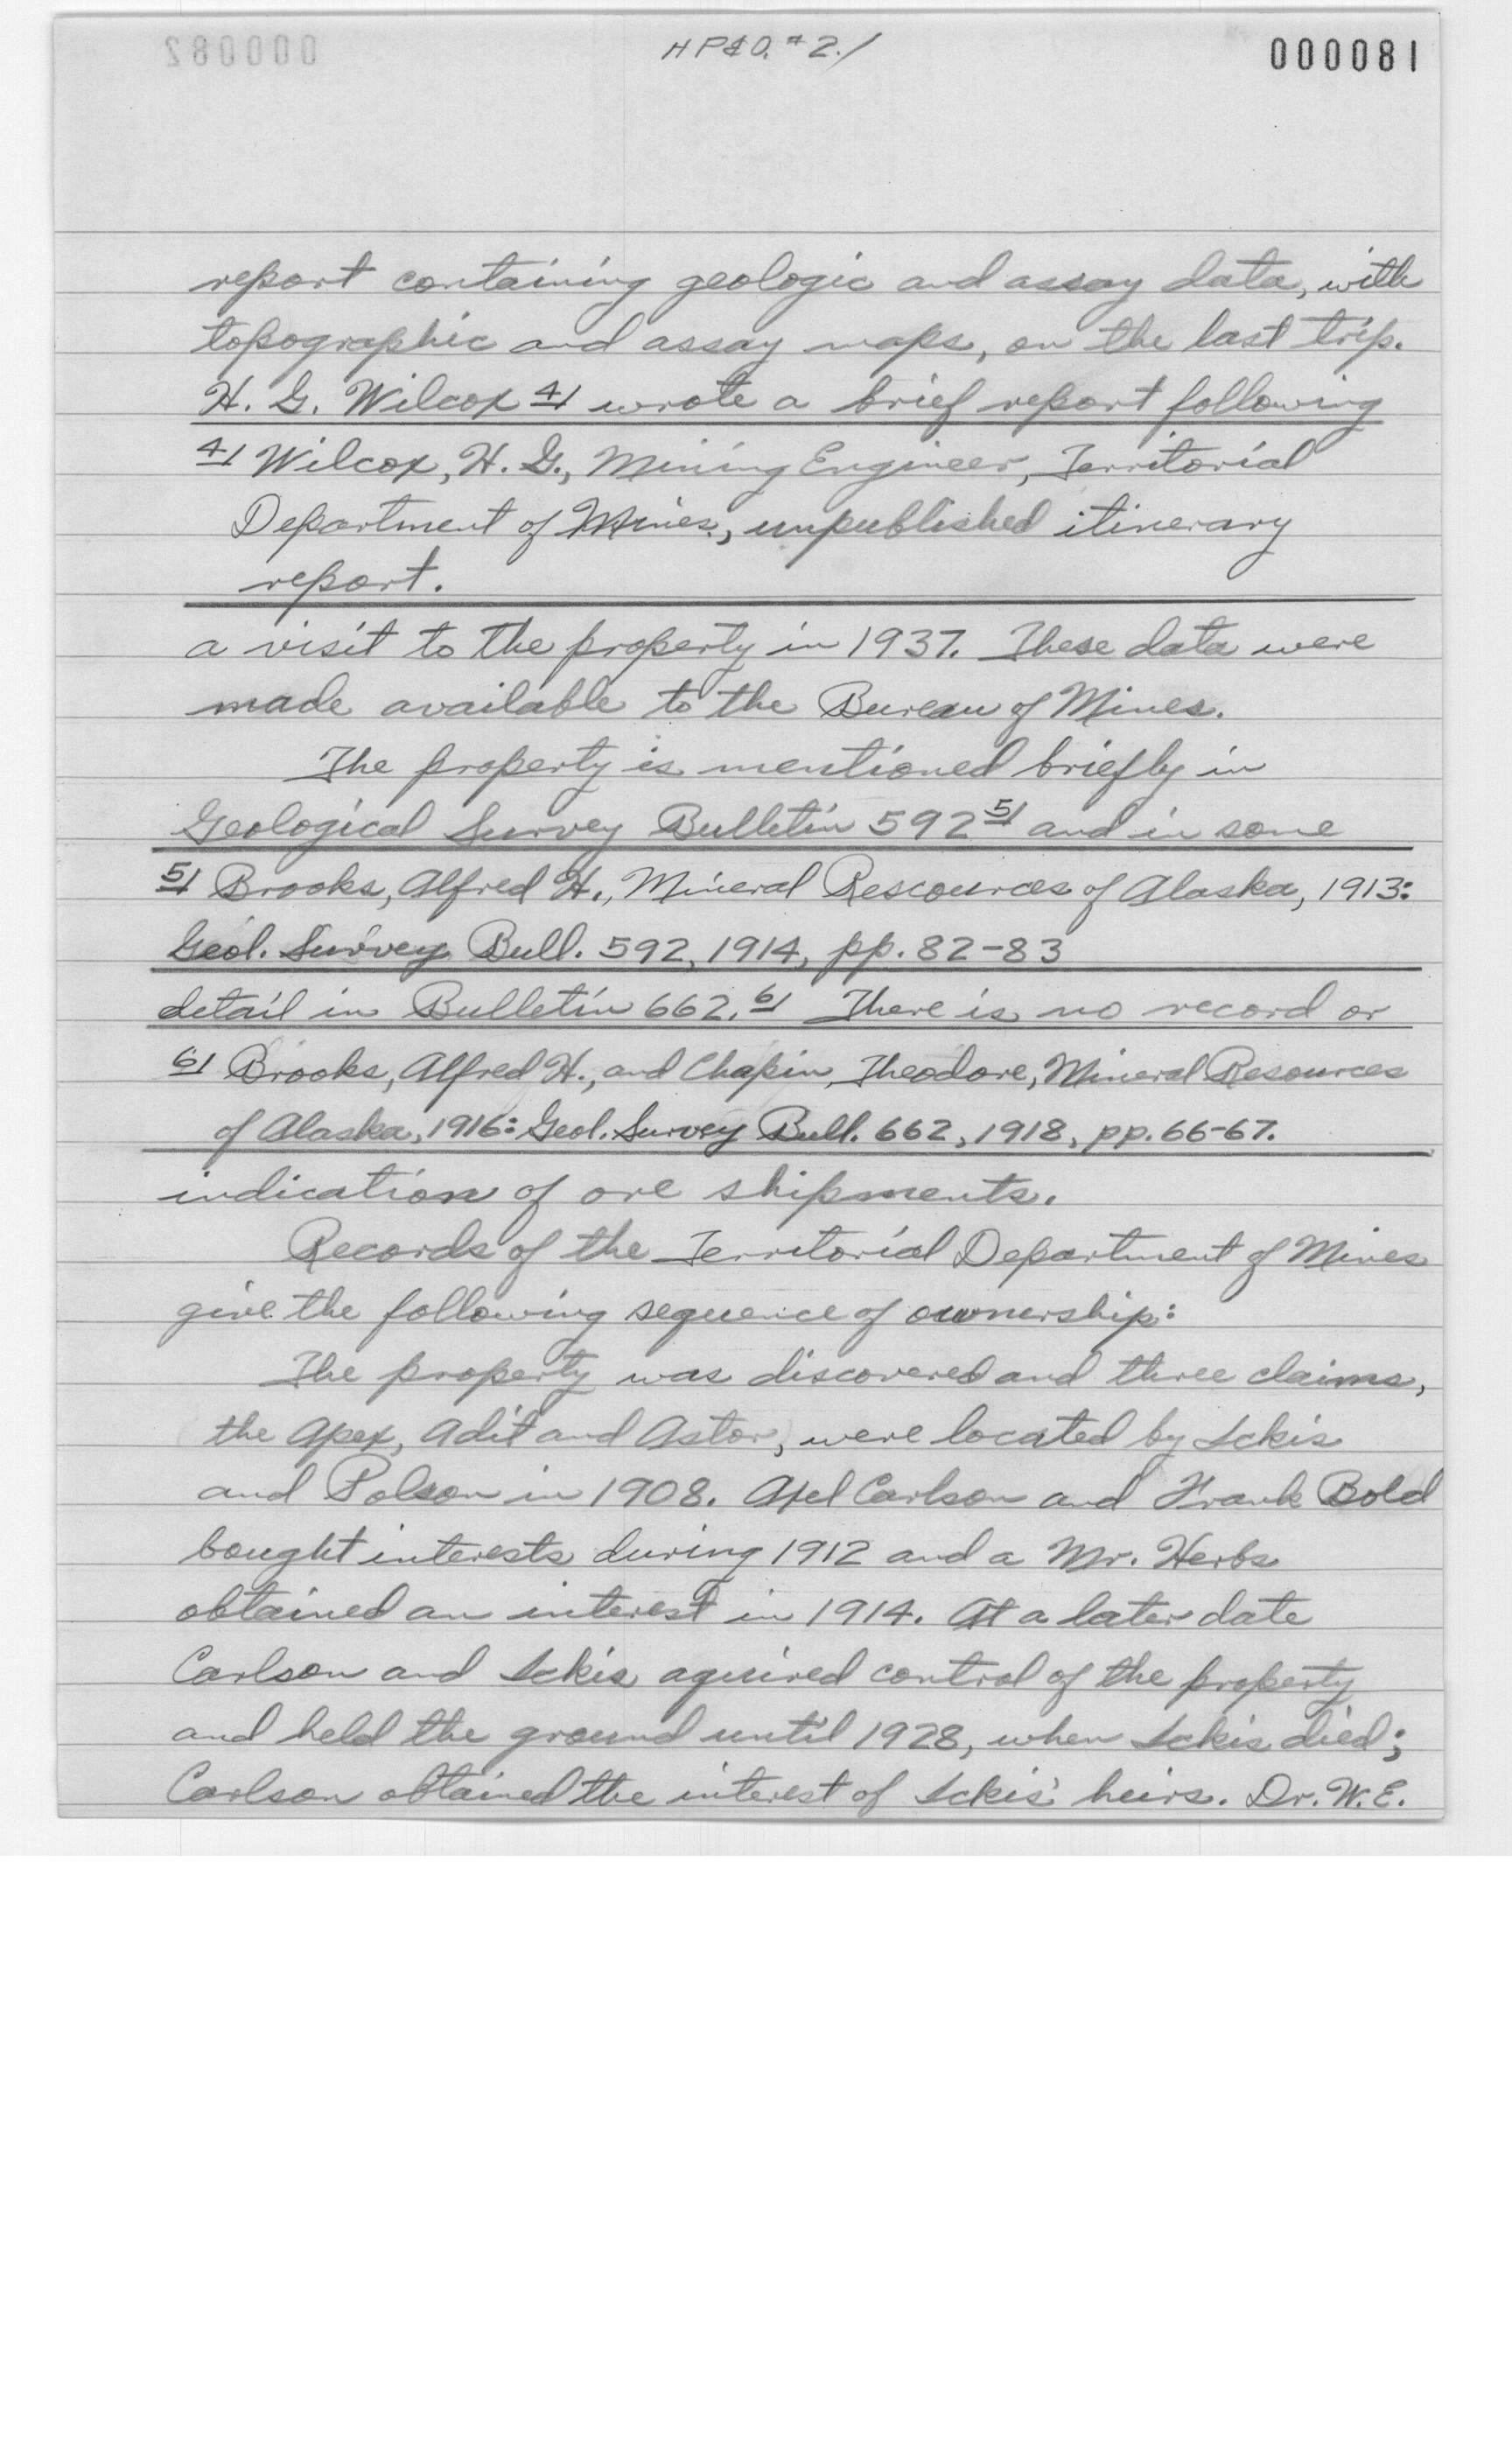 HP&O. #2./
000081
report containing geologic and assay data, with
topographic and assay maps, on the last trip.
H. G. Wilcox 4/ wrote a brief report following
4/ Wilcox, H. G., Mining Engineer, Territorial
Department of Mines, unpublished itinerary
report.
a visit to the property in 1937. These data were
made available to the Bureau of Mines.
The property is mentioned briefly in
Geological Survey Bulletin 592 5/ and in some
5/ Brooks, Alfred H., Mineral Rescources of Alaska, 1913:
Geol. Survey Bull. 592, 1914, pp. 82-83
detail in Bulletin 662. 6/ There is no record or
6/ Brooks, Alfred H., and Chapin, Theodore, Mineral Resources
of Alaska, 1916: Geol. Survey Bull. 662, 1918, pp. 66-67.
indication of ore shipments.
Records of the Territorial Department of Mines
give the following sequence of ownership:
The property was discovered and three claims,
the Apex, Adit and Astor, were located by Ickis
and Polson in 1908. Axel Carlson and Frank Bold
bought interests during 1912 and a Mr. Herbs
obtained an interest in 1914. At a later date
Carlson and Ickis aquired control of the property
and held the ground until 1928, when Ickis died;
Carlson obtained the interest of Ickis' heirs. Dr. W.E.